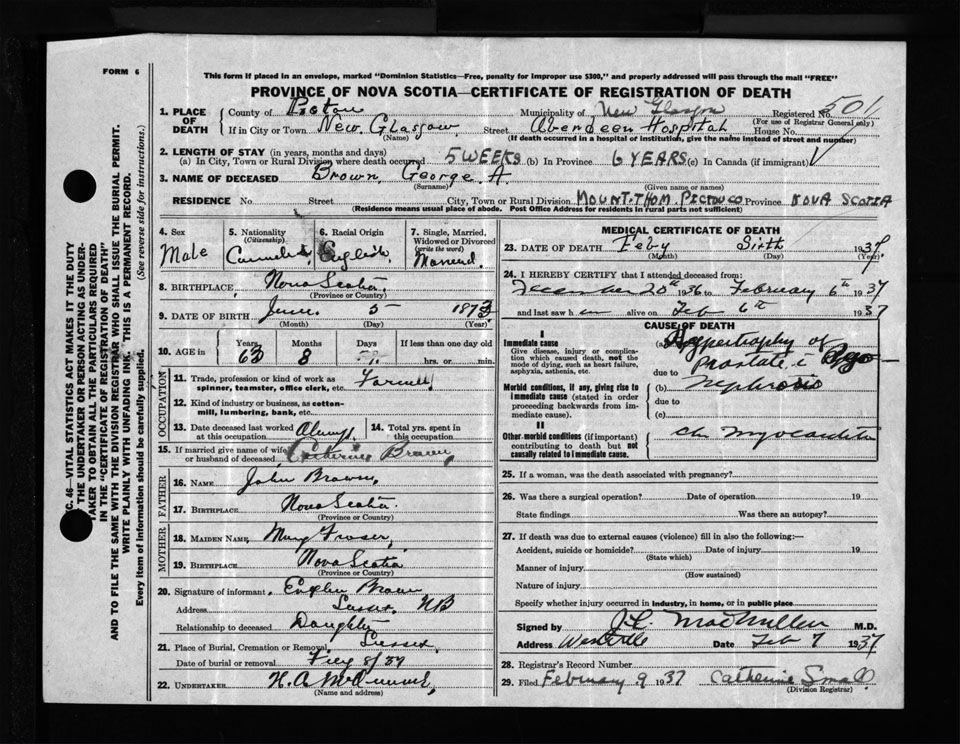 FORM 6
This form if placed in an envelope, marked "Dominion Statistics—Free, penalty for improper use $300," and properly addressed will pass through the mail "FREE"
PROVINCE OF NOVA SCOTIA—CERTIFICATE OF REGISTRATION OF DEATH
1. PLACE OF DEATH
County of Pictou Municipality of New Glasgow Registered No. 501
(For use of Registrar General only)
If in City or Town New Glasgow, Street Aberdeen Hospital House No.
(Name) (If death occurred in a hospital or institution, give the name instead of street and number)
2. LENGTH OF STAY (in years, months and days)
(a) In City, Town or Rural Division where death occurred 5 WEEKS (b) In Province 6 YEARS (c) In Canada (if immigrant)
3. NAME OF DECEASED Brown, George. A.
(Surname) (Given name or names)
RESIDENCE No. Street City, Town or Rural Division MOUNT THOM PICTOU CO Province NOVA SCOTIA
(Residence means usual place of abode. Post Office Address for residents in rural parts not sufficient)
4. Sex Male
5. Nationality (Citizenship)
6. Racial Origin English
7. Single, Married, Widowed or Divorced (write the word) Married
8. BIRTHPLACE Nova Scotia
(Province or Country)
9. DATE OF BIRTH June 5 1873
(Month) (Day) (Year)
10. AGE in Years 63 Months 8 Days If less than one day
hrs. or min.
OCCUPATION
11. Trade, profession or kind of work as spinner, teamster, office clerk, etc. Farmer
12. Kind of industry or business, as cotton-mill, lumbering, bank, etc.
13. Date deceased last worked at this occupation Always
14. Total yrs. spent in this occupation
15. If married give name of wife or husband of deceased Catherine Brown,
FATHER
16. NAME John Brown,
17. BIRTHPLACE Nova Scotia
(Province or Country)
MOTHER
18. MAIDEN NAME Mary Fraser,
19. BIRTHPLACE Nova Scotia
(Province or Country)
20. Signature of informant Brown
Address Sussex, NB
Relationship to deceased Daughter
21. Place of Burial, Cremation or Removal Sussex
Date of burial or removal 8/37
22. UNDERTAKER H. A.
(Name and address)
MEDICAL CERTIFICATE OF DEATH
23. DATE OF DEATH Feby Sixth 1937
(Month) (Day) (Year)
24. I HEREBY CERTIFY that I attended deceased from:
December 20th 1936 to February 6th 1937
and last saw h im alive on Feb 6th 1937
CAUSE OF DEATH
I
Immediate cause
Give disease, injury or complication which caused death, not the mode of dying, such as heart failure, asphyxia, asthenia, etc.
(a) Hypertrophy of
prostate
due to
Morbid conditions, if any, giving rise to immediate cause (stated in order proceeding backwards from immediate cause).
(b)
due to
(c)
II
Other morbid conditions (if important) contributing to death but not causally related to immediate cause.
Ch Myocarditis
25. If a woman, was the death associated with pregnancy?
26. Was there a surgical operation? Date of operation 19
State findings Was there an autopsy?
27. If death was due to external causes (violence) fill in also the following:—
Accident, suicide or homicide? Date of injury 19
(State which)
Manner of injury
(How sustained)
Nature of injury
Specify whether injury occurred in industry, in home, or in public place
Signed by J. L. MacMillan M.D.
Address Westville Date Feb 7 1937
28. Registrar's Record Number
29. Filed February 9 1937 Catherine Small
(Division Registrar)
C. 46—VITAL STATISTICS ACT MAKES IT THE DUTY
THE UNDERTAKER OR PERSON ACTING AS UNDERTAKER TO OBTAIN ALL THE PARTICULARS REQUIRED
IN THE "CERTIFICATE OF REGISTRATION OF DEATH"
AND TO FILE THE SAME WITH THE DIVISION REGISTRAR WHO SHALL ISSUE THE BURIAL PERMIT.
WRITE PLAINLY WITH UNFADING INK. THIS IS A PERMANENT RECORD.
Every item of Information should be carefully supplied. (See reverse side for instructions.)